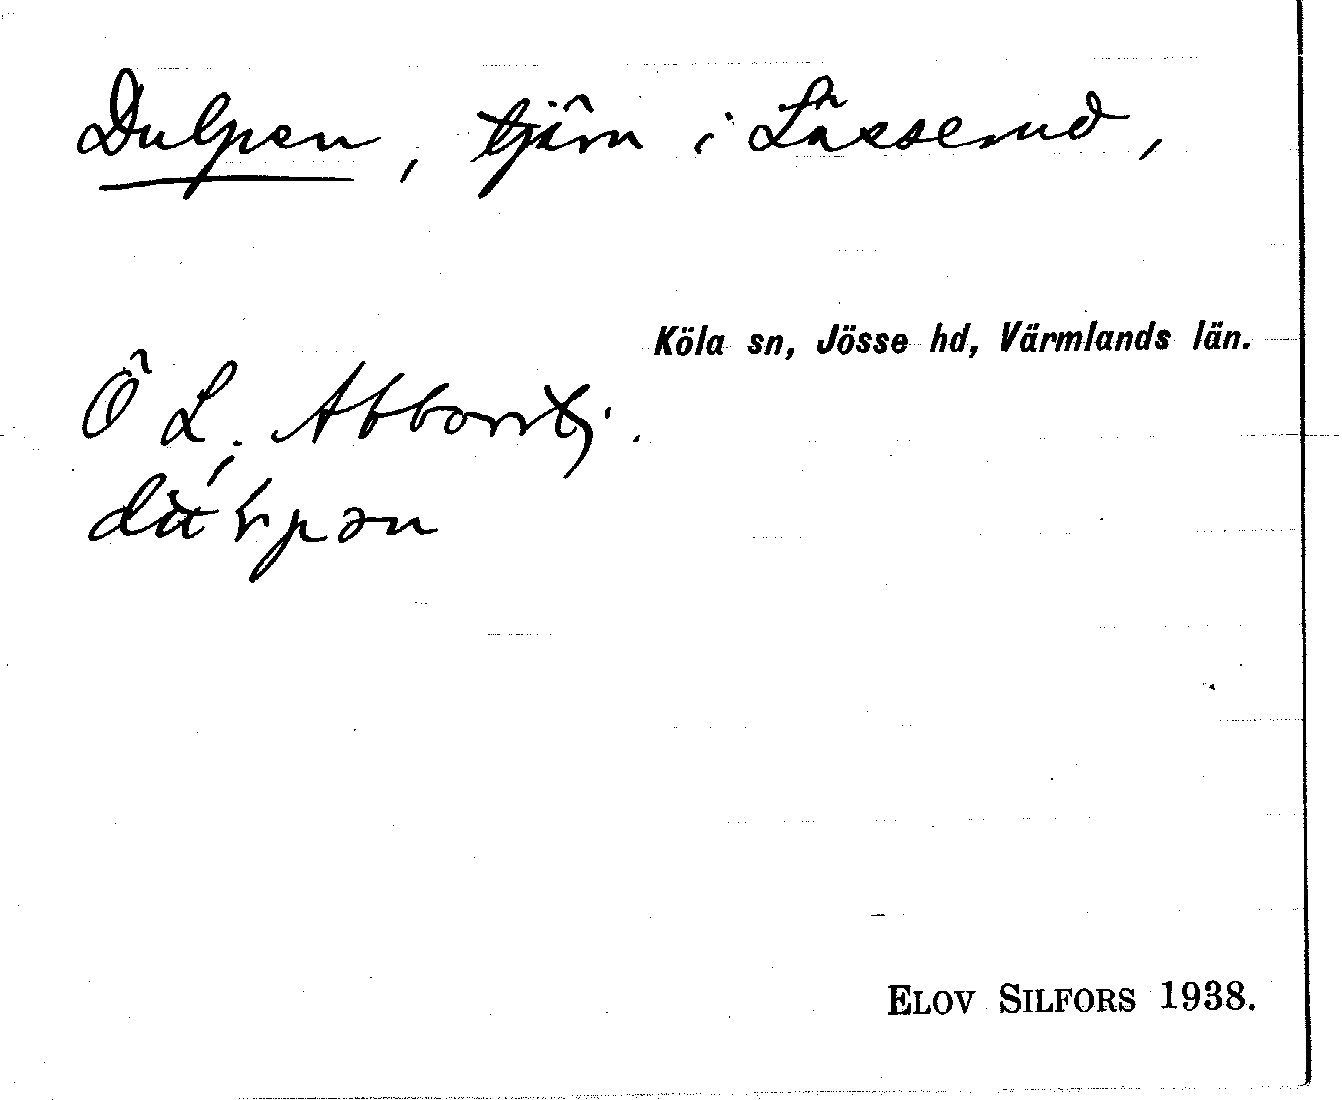 Dulpen, tjärn i Lässerud,
Köla sn, Jösse hd, Värmlands län.
Ö L. Abborrtj.
ELOV SILFORS 1938.